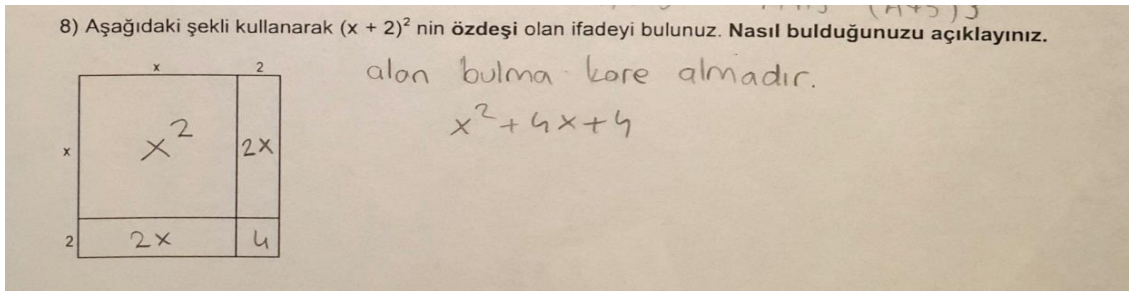 8) Aşağıdaki şekli kullanarak (x + 2)² nin özdeşi olan ifadeyi bulunuz. Nasıl bulduğunuzu açıklayınız.
x 2
alan bulma kare almadır.
x² + 4x + 4
x x² 2x
2 2x 4